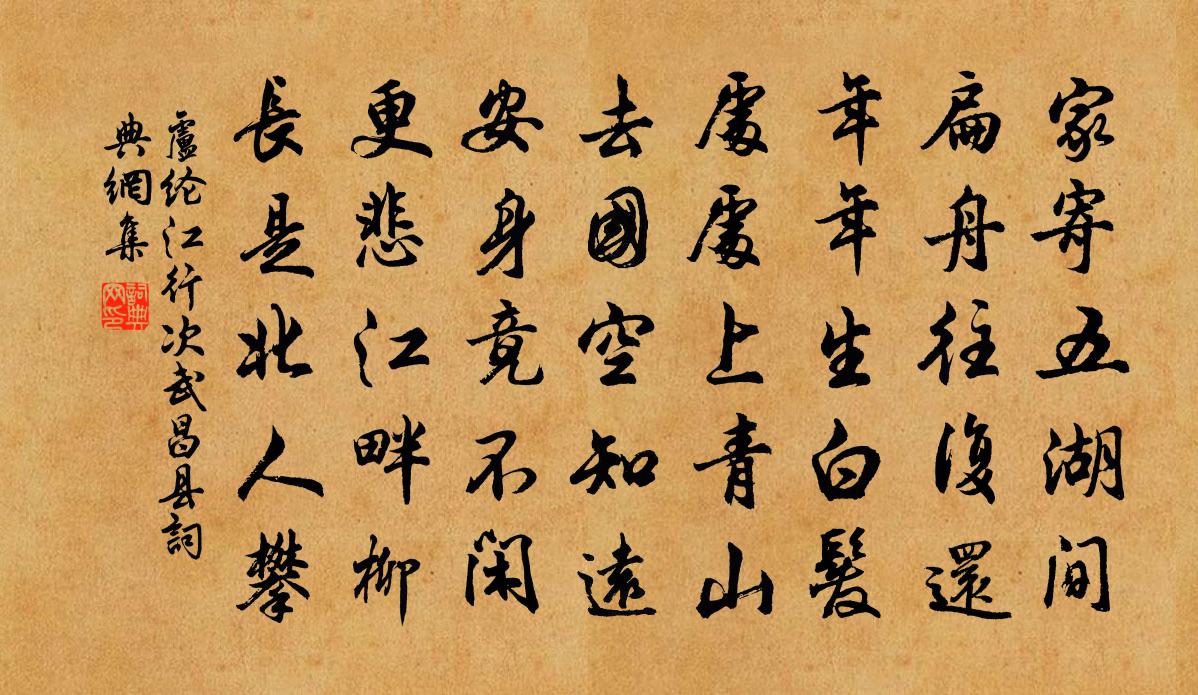 家寄五湖间
扁舟往復還
年年生白髮
處處上青山
去國空知遠
安身竟不閑
更悲江畔柳
長是北人攀
盧纶江行次武昌县詞
典網集
詞典
网印